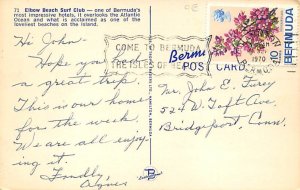 71 Elbow Beach Surf Club — one of Bermuda's
most impressive hotels. It overlooks the Atlantic
Ocean and what is acclaimed as one of the
loveliest beaches on the island.
Hi John,
Hope you had
a great trip.
This is our home
for the week.
We are all enjoy-
ing it.
Fondly,
Agnes
COME TO BERMUDA
THE ISLES OF REST
Bermuda
POST CARD
1970
BERMUDA
Mr. John E. Furey
52 W. Taft Ave.
Bridgeport, Conn.